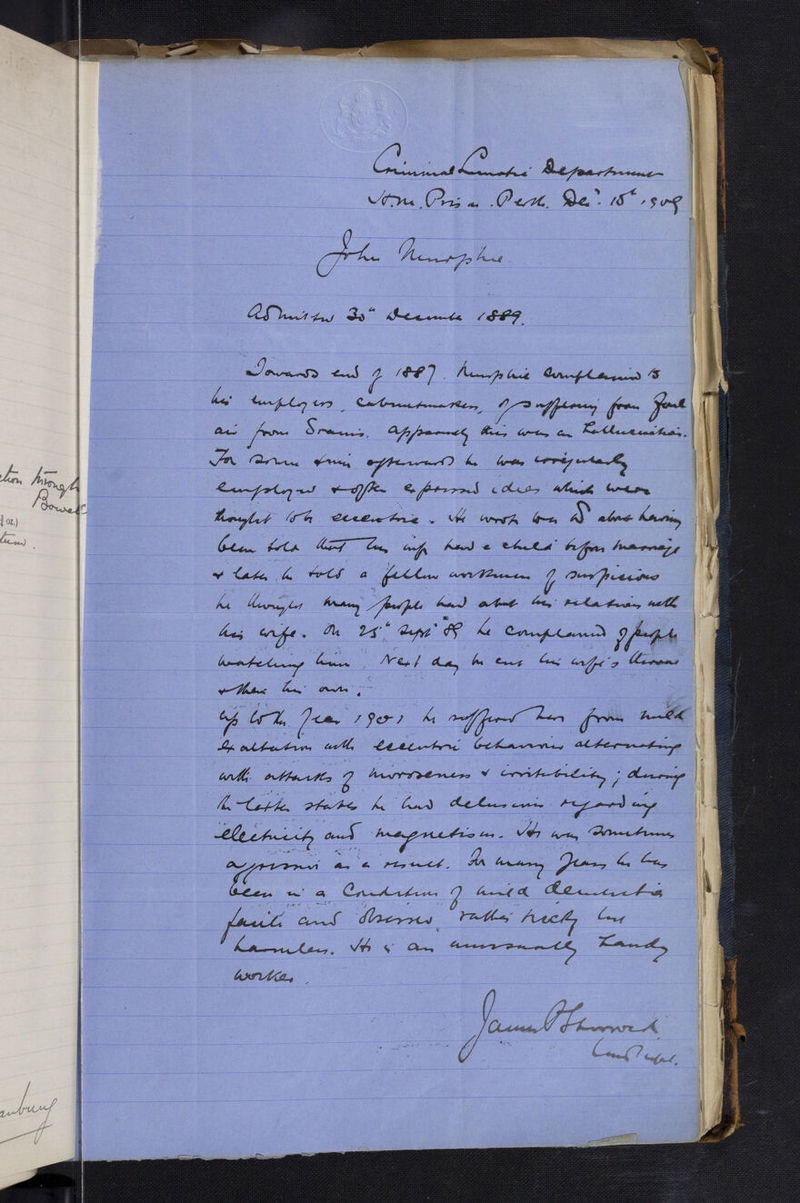 ction through
Bowel
Criminal Lunatic Department
H.M. Prison. Perth. Dec. 1909
John
Admitted 30" December 1889.
Towards end of 1887. complained to
his employers, cabinetmakers, of suffering from foul
air from Drains. Apparently this was an Hallucination.
For some time afterwards he was irregularly
employed & often expressed ideas which were
thought to be eccentric. He wrote about having
been told that his wife had a child before marriage
& later he told a fellow workman of suspicions
he thought many people had about his relations with
his wife. On 25" Sept 89 he complained of people
watching him. Next day he cut his wife's throat
& then his own.
Up to the year 1901 he suffered here from mild
exaltation with eccentric behaviour alternating
with attacks of moroseness & irritability; during
the latter states he had delusions regarding
electricity and magnetism. He was sometimes
aggressive as a result. For many years he has
been in a condition of mild dementia
facile and rather but
harmless. He is an unusually handy
worker.
James